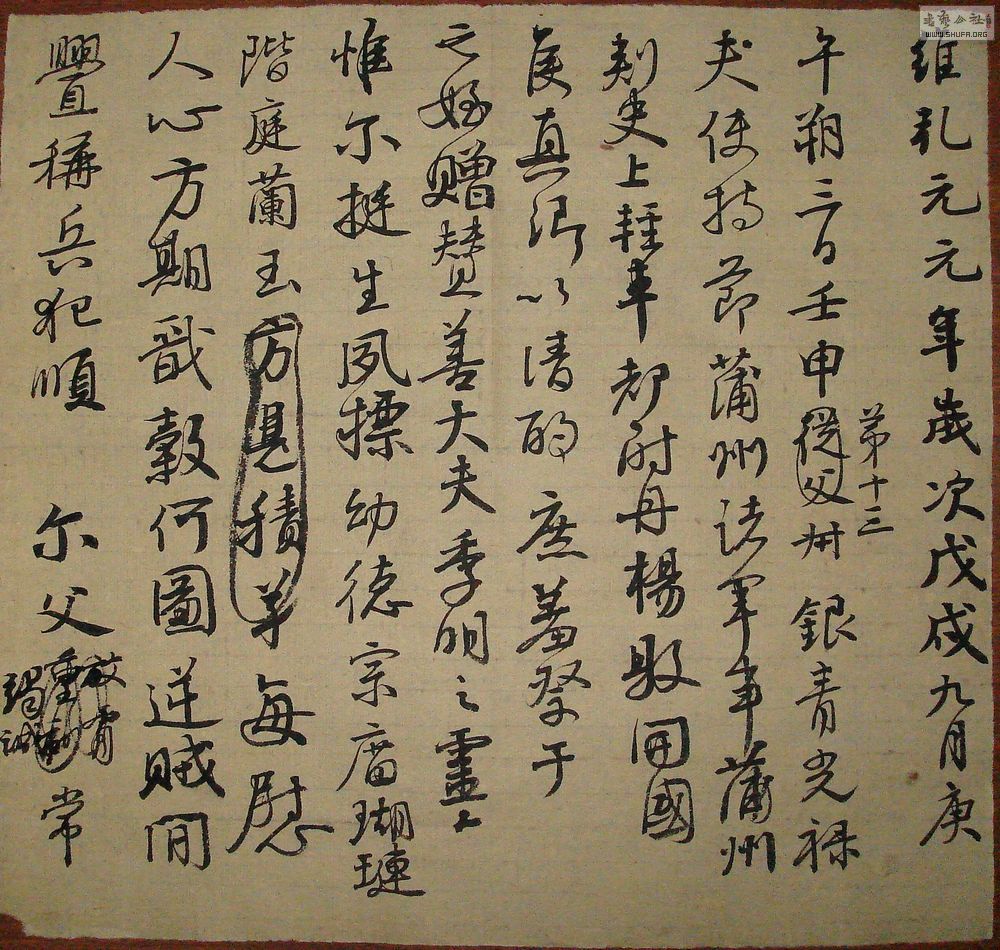 維乾元元年歲次戊戌九月庚
午朔三日壬申從父卅銀青光祿
第十三
夫使持節蒲州諸軍事蒲州
刺史上輕車都尉丹楊縣開國
侯真卿以清酌庶羞祭于
亡姪贈贊善大夫季明之靈曰
惟尔挺生夙標幼德宗廟瑚璉
階庭蘭玉方憑積善每慰
人心方期戩穀何圖逆賊間
釁稱兵犯順 尔父常
竭誠
書藝公社
WWW.SHUFA.ORG